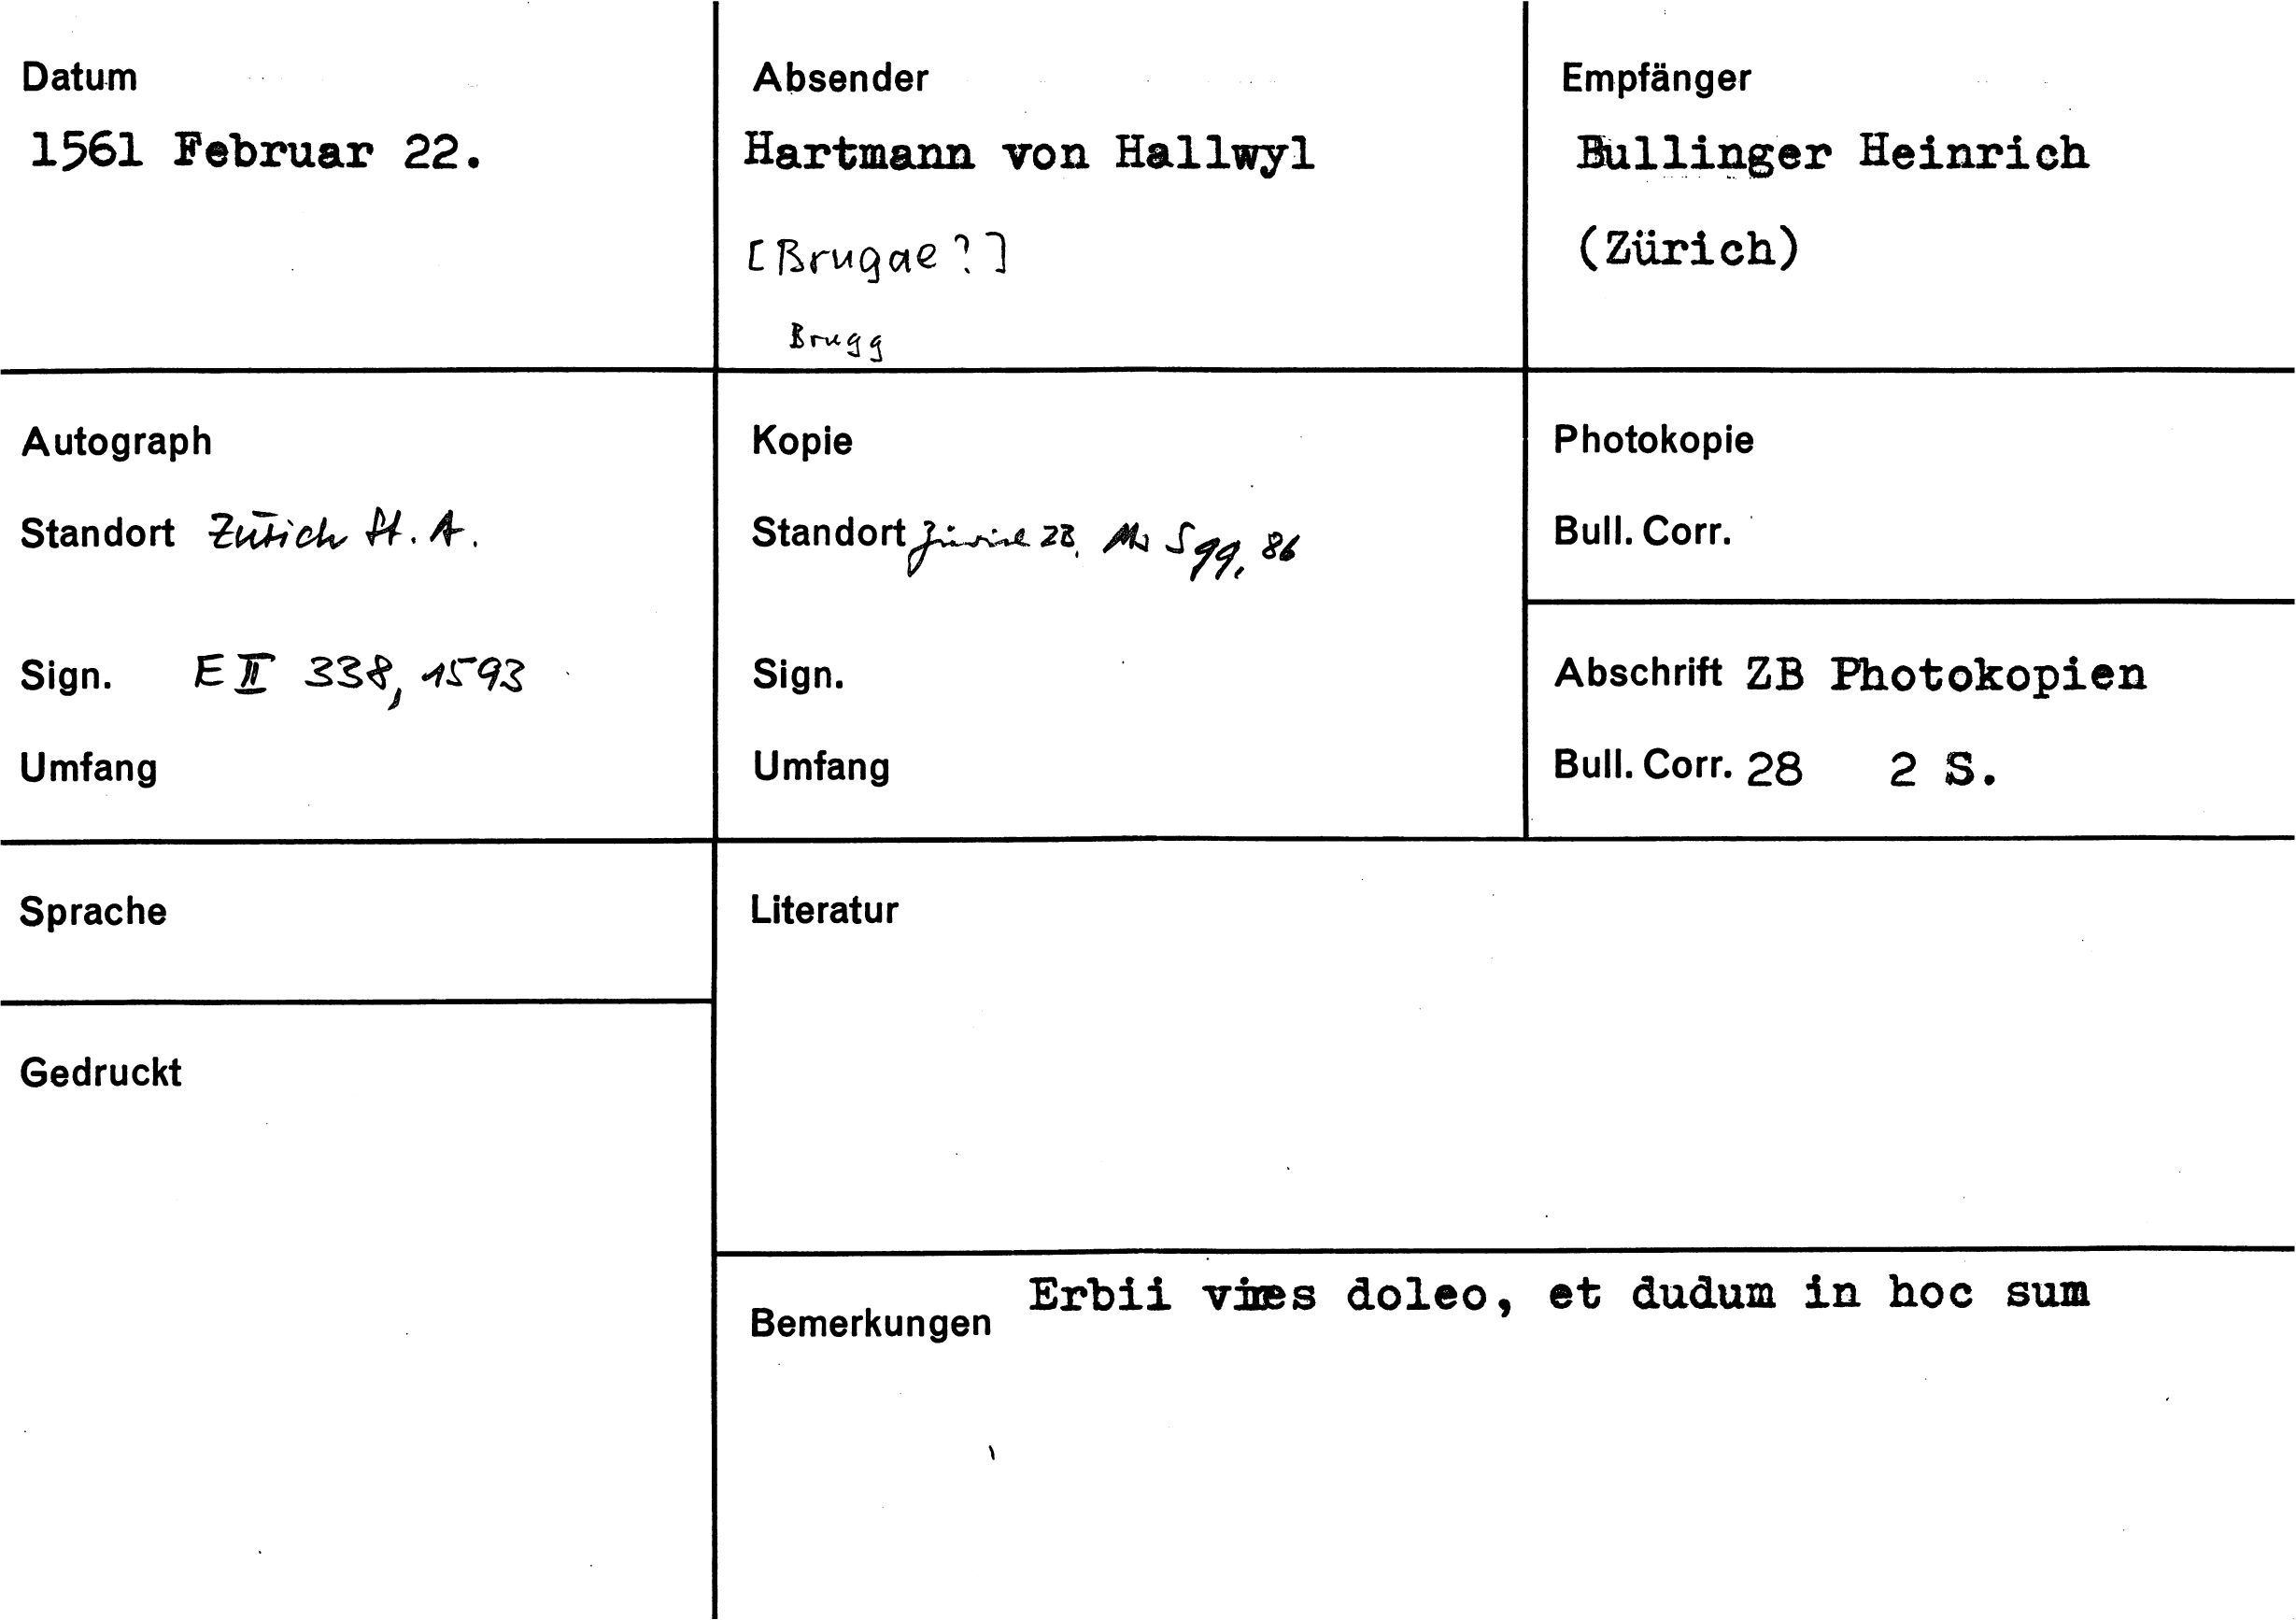 Datum
1561 Februar 22.
Absender
Hartmann von Hallwyl
[Brugae?]
Brugg
Empfänger
Bullinger Heinrich
(Zürich)
Autograph
Standort Zürich St. A.
Sign. E II 338, 1593
Umfang
Kopie
Standort Zürich ZB, Ms S 99, 86
Sign.
Umfang
Photokopie
Bull. Corr.
Abschrift ZB Photokopien
Bull. Corr. 28 2 S.
Sprache
Gedruckt
Literatur
Bemerkungen Erbii vires doleo, et dudum in hoc sum